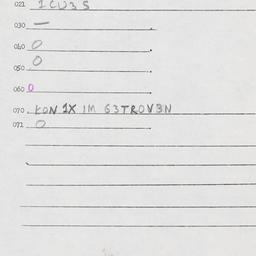 021 1CU3S
030 —
040 0
050 0
060 0
070 KON 1X IM G3TROV3N
071 0